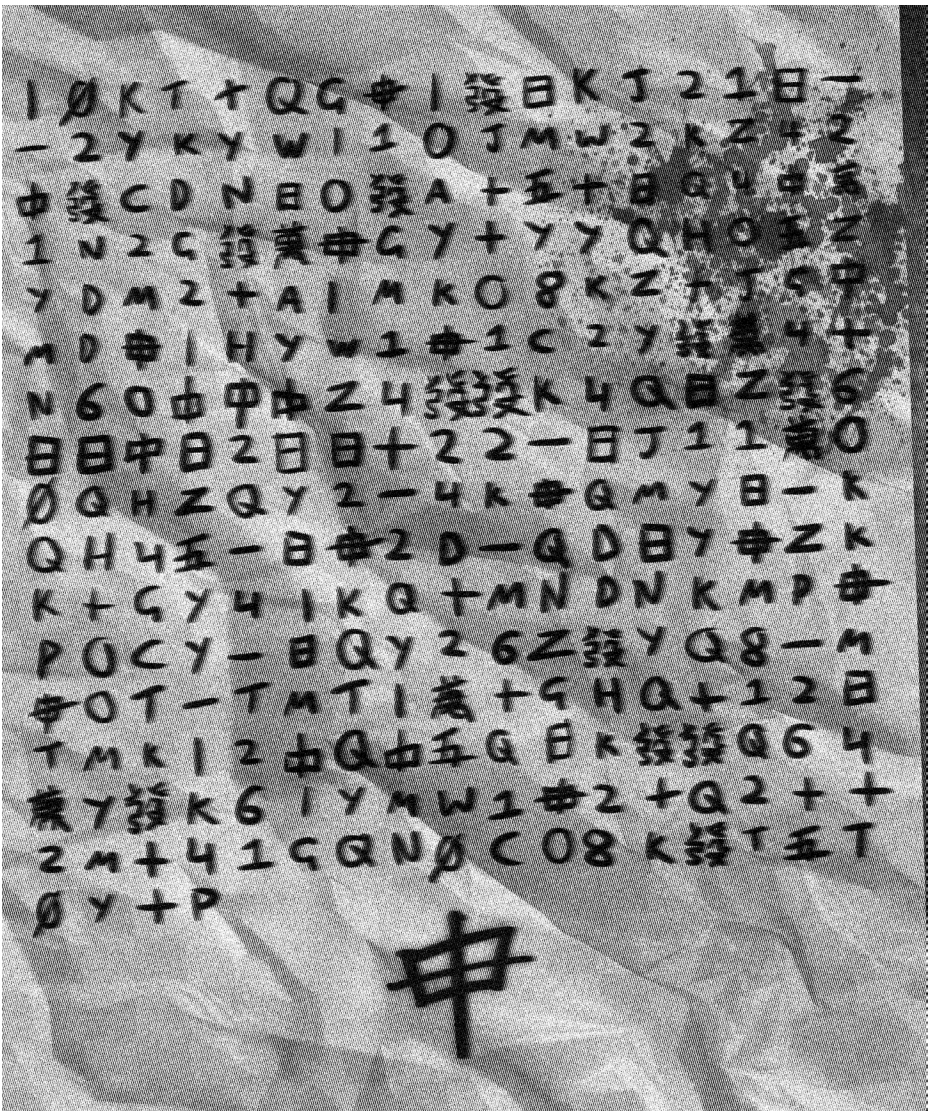 | Ø K T + Q G 申 | 發 日 K J 2 1 日 一
一 2 Y K Y W | 1 O J M W 2 K Z 4 2
中 發 C D N 日 O 發 A + 五 + 日 Q 4 中 萬
1 N 2 G 發 萬 申 G Y + Y Y Q H O 五 Z
Y D M 2 + A | M K O 8 K Z + J G 中
M D 申 | H Y W 1 申 1 C 2 Y 發 萬 4 +
N 6 O 中 中 中 Z 4 發 發 K 4 Q 日 Z 發 6
日 日 中 日 2 日 日 + 2 2 一 日 J 1 1 萬 O
Ø Q H Z Q Y 2 一 4 K 申 Q M Y 日 一 K
Q H 4 五 一 日 申 2 D 一 Q D 日 Y 申 Z K
K + G Y 4 | K Q + M N D N K M P 申
P O C Y 一 日 Q Y 2 6 Z 發 Y Q 8 一 M
申 O T 一 T M T | 萬 + G H Q + 1 2 日
T M K | 2 中 Q 中 五 Q 日 K 發 發 Q 6 4
萬 Y 發 K 6 | Y M W 1 申 2 + Q 2 + +
2 M + 4 1 G Q N Ø C O 8 K 發 T 五 T
Ø Y + P
申